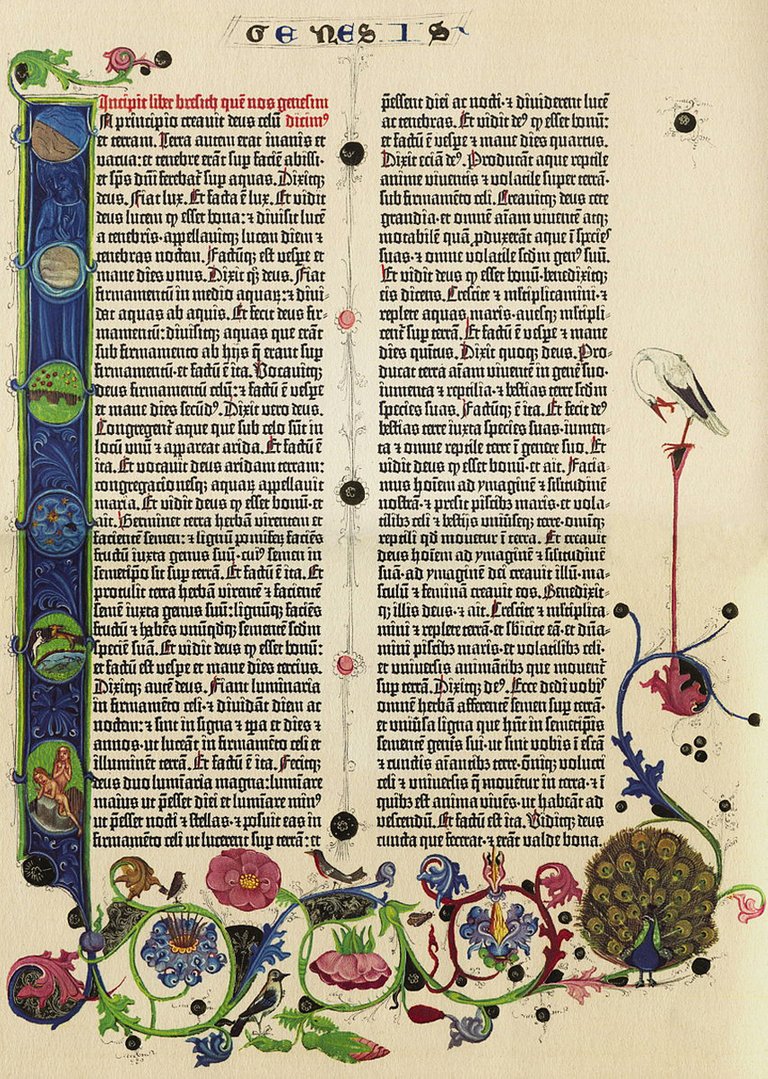 GENESIS
Incipit liber bresith quē nos genesim
In principio creavit deus celū dicim⁹
et terram. Terra autem erat inanis et
vacua: et tenebre erāt sup faciē abissi·
et sp̄s dn̄i ferebat̄ sup aquas. Dixitq̄
deus. Fiat lux. Et facta ē lux. Et vidit
deus lucem qȝ esset bona: ⁊ divisit lucē
a tenebris· appellavitq̄ lucem diem ⁊
tenebras noctem. Factūq̄ est vespe et
mane dies unus. Dixit q̄ꝫ deus. Fiat
firmamentū in medio aquaꝝ: ⁊ divi-
dat aquas ab aquis. Et fecit deus fir-
mamentū: divisitq̄ aquas que erāt
sub firmamento ab hijs q̄ erant sup
firmamentū· et factū ē ita. Vocavitq̄
deus firmamentū celū: ⁊ factū ē vespe
et mane dies secūd⁹. Dixit vero deus.
Congregent̄ aque que sub celo sūt in
locū unū ⁊ appareat arida. Et factū ē
ita. Et vocavit deus aridam terram:
congregacionesq̄ aquaꝝ appellavit
maria. Et vidit deus qȝ esset bonū· et
ait. Germinet terra herbā virentem et
facientē semen: ⁊ lignū pomifeꝝ faciēs
fructū iuxta genus suū· cui⁹ semen in
semetipo sit sup terrā. Et factū ē ita. Et
protulit terra herbā virentē ⁊ facientē
semē iuxta genus suū: lignūq̄ faciēs
fructū ⁊ habēs unūqdq̄ sementē scdm
speciē suā. Et vidit deus qȝ esset bonū:
et factū est vespe et mane dies tercius.
Dixitq̄ autē deus. Fiant luminaria
in firmamēto celi· ⁊ dividāt diem ac
noctem: ⁊ sint in signa ⁊ tp̄a et dies ⁊
annos· ut luceāt in firmamēto celi et
illuminēt terrā. Et factū ē ita. Fecitq̄
deus duo lumīaria magna: lumīare
maius ut p̄esset diei et lumīare min⁹
ut p̄esset nocti ⁊ stellas· ⁊ posuit eas in
firmamēto celi ut lucerent sup terrā: et
p̄essent diei ac nocti· ⁊ dividerent lucē
ac tenebras. Et vidit de⁹ qȝ esset bonū:
et factū ē vespe ⁊ mane dies quartus.
Dixit eciā de⁹. Producāt aque reptile
anime viventis ⁊ volatile super terrā·
sub firmamēto celi. Creavitq̄ deus cete
grandia· et omnē aīam viventē atq̄
motabilē quā ꝓduxerāt aque ī species
suas· ⁊ omne volatile scdm gen⁹ suū.
Et vidit deus qȝ esset bonū· benedixitq̄
eis dicens. Crescite ⁊ mltiplicamini· ⁊
replete aquas maris· avesq̄ mltipli-
cent̄ sup terrā. Et factū ē vespe ⁊ mane
dies quitus. Dixit quoq̄ deus. Pro-
ducat terra aīam viventē in gene suo·
iumenta ⁊ reptilia· ⁊ bestias terre scdm
species suas. Factūq̄ ē ita. Et fecit de⁹
bestias terre iuxta species suas· iumen-
ta ⁊ omne reptile terre ī genere suo. Et
vidit deus qȝ esset bonū· et ait. Facia-
mus hoīem ad ymaginē ⁊ silitudinē
nostrā· ⁊ presit piscibȝ maris· et vola-
tilibȝ celi ⁊ bestijs univseq̄ terre· omniq̄
reptili qd movetur ī terra. Et creavit
deus hoīem ad ymaginē ⁊ silitudinē
suā· ad ymaginē dei creavit illū· ma-
sculū ⁊ feminā creavit eos. Benedixit-
q̄ illis deus· ⁊ ait. Crescite ⁊ mltiplica-
mini ⁊ replete terrā· et sbicite eā· et dn̄a-
mini piscibȝ maris· et volatilibȝ celi·
et universis animātibȝ que movent̄
sup terrā. Dixitq̄ de⁹. Ecce dedi vobis
omnē herbā afferentē semen sup terrā·
et univsa ligna que hn̄t in semetipis
sementē genis sui· ut sint vobis ī escā
⁊ cunctis aīantibȝ terre· oīniq̄ volucri
celi ⁊ universis q̄ movētur in terra· ⁊ ī
quibȝ est anima vivēs· ut habeāt ad
vescendū. Et factū est ita. Viditq̄ deus
cuncta que fecerat· ⁊ erāt valde bona.